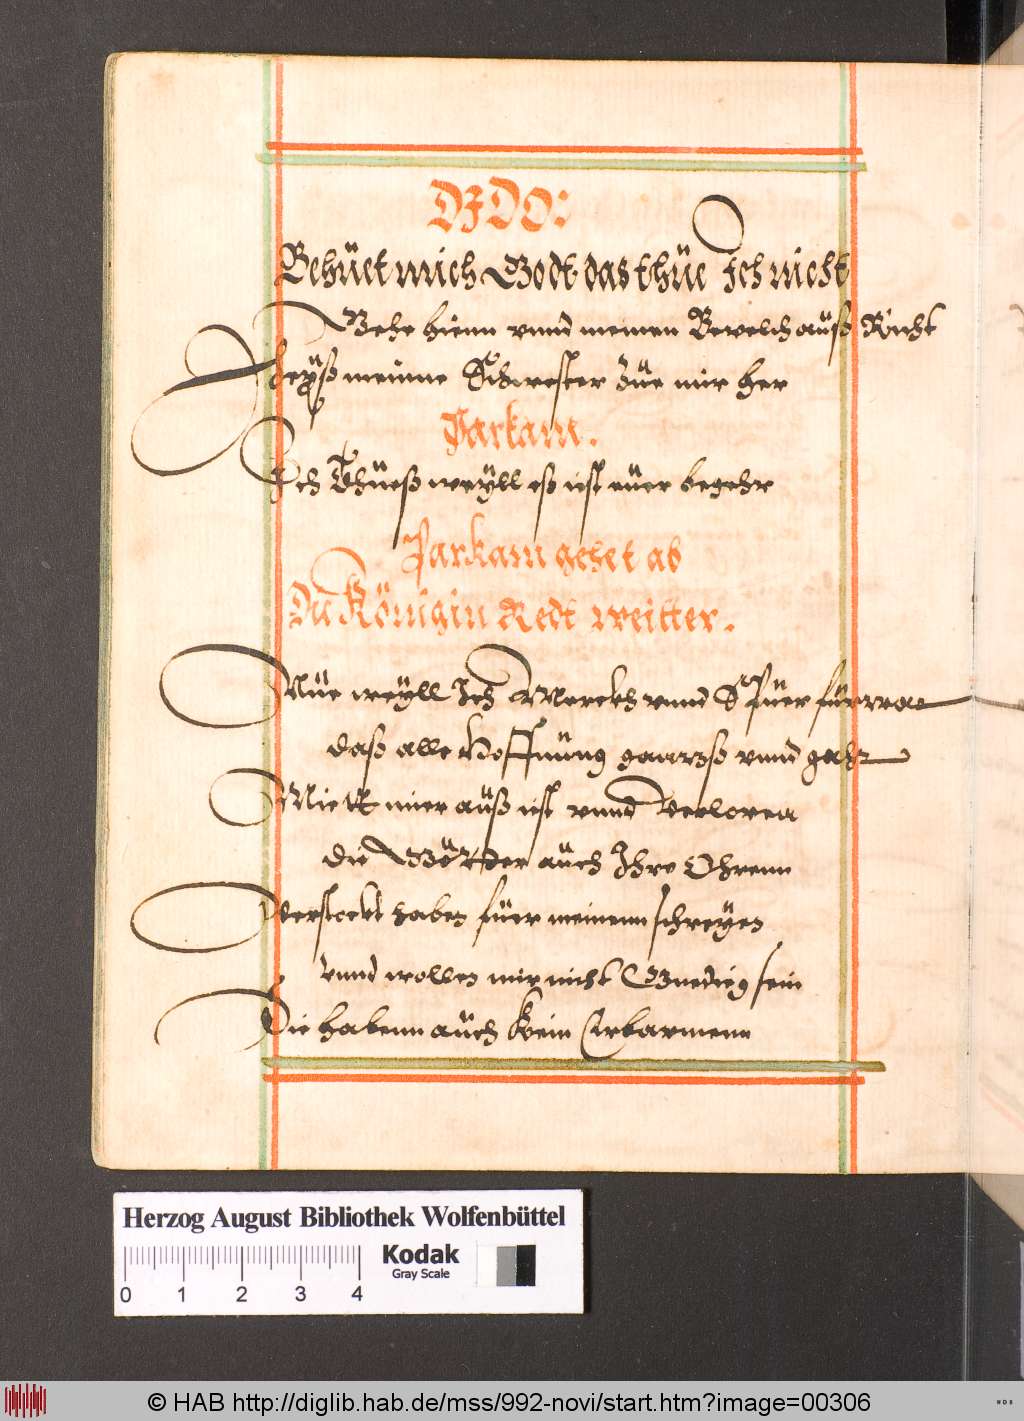 DIDO:
Behüet mich Godt das thüe Ich nicht
Gehe hienn vnnd meinen Bevelch auß Richt
heyß meinne Schwester züe mir her
Parkam.
Ich Thüeß weyll eß ist euer begehr
Parkam gehet ab
Die Königin Redt weitter.
Nüe weyll Ich Merckh vnnd Spüer fürwar
daß alle Hoffnüng gannzß vnnd gahr
Mitt mier auß ist vnnd Verloren
die Götter aüch Ihre Ohrenn
Verstockt haben füer meinenn schreyen
vnnd wollen mir nicht Gnedig sein
Die habenn aüch Kein Erbarmenn
Herzog August Bibliothek Wolfenbüttel
Kodak
Gray Scale
0 1 2 3 4
© HAB http://diglib.hab.de/mss/992-novi/start.htm?image=00306